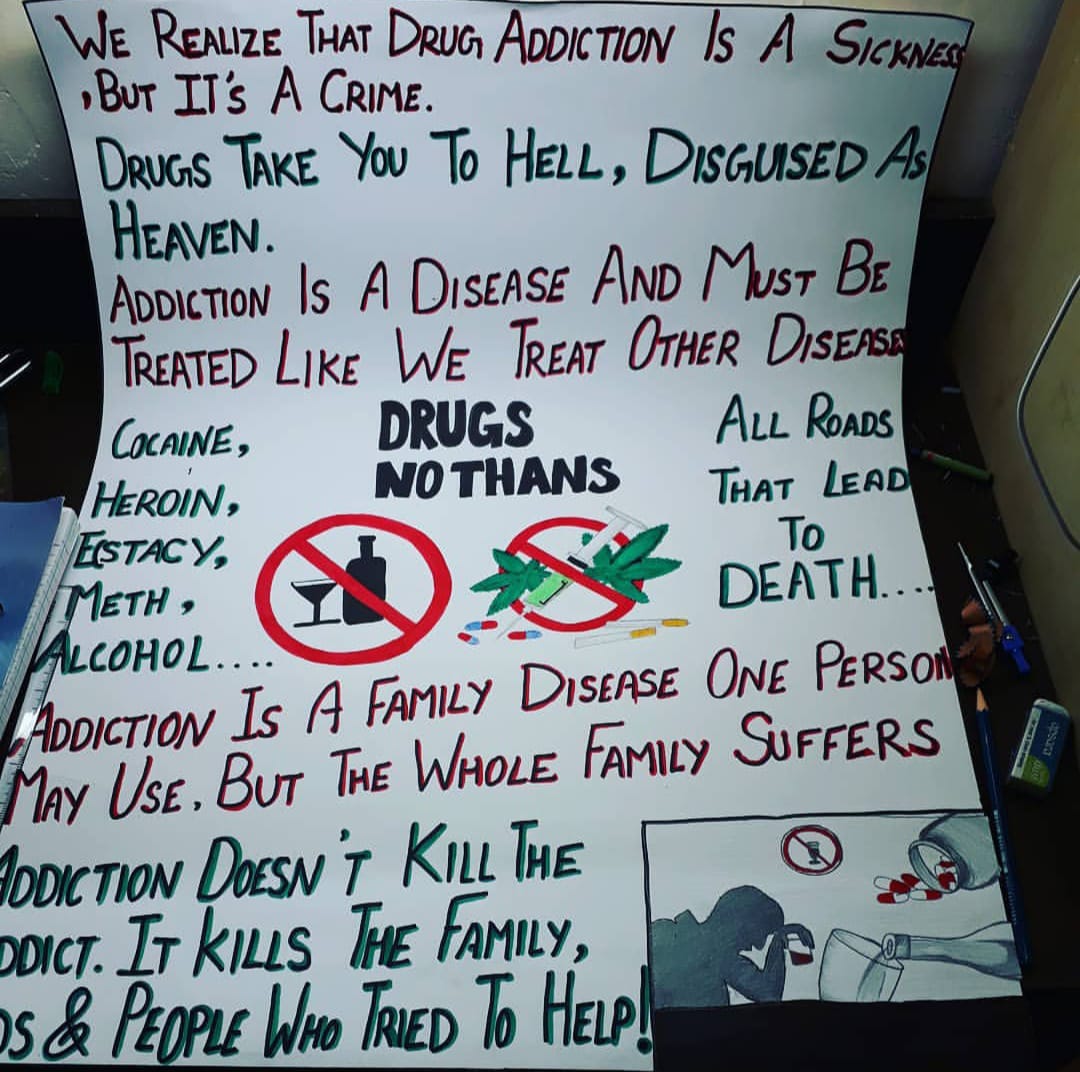 WE REALIZE THAT DRUG ADDICTION IS A SICKNESS
, BUT IT'S A CRIME.
DRUGS TAKE YOU TO HELL, DISGUISED AS
HEAVEN.
ADDICTION IS A DISEASE AND MUST BE
TREATED LIKE WE TREAT OTHER DISEASE
COCAINE,
HEROIN,
ECSTACY,
METH,
ALCOHOL....
DRUGS
NO THANS
ALL ROADS
THAT LEAD
TO
DEATH....
ADDICTION IS A FAMILY DISEASE ONE PERSON
MAY USE, BUT THE WHOLE FAMILY SUFFERS
ADDICTION DOESN'T KILL THE
DDICT. IT KILLS THE FAMILY,
DS & PEOPLE WHO TRIED TO HELP!
apsara